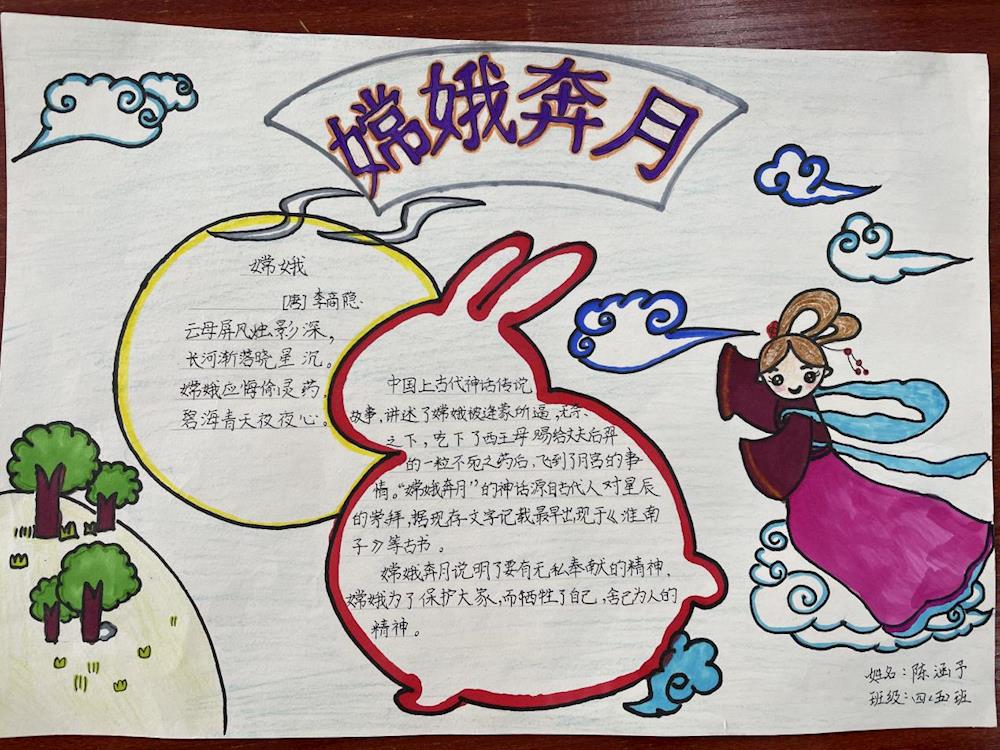 嫦娥奔月
嫦娥
[唐]李商隐
云母屏风烛影深，
长河渐落晓星沉。
嫦娥应悔偷灵药，
碧海青天夜夜心。
中国上古代神话传说
故事，讲述了嫦娥被逢蒙所逼，无奈
之下，吃下了西王母赐给丈夫后羿
的一粒不死之药后，飞到了月宫的事
情。“嫦娥奔月”的神话源自古代人对星辰
的崇拜，据现存文字记载最早出现于《淮南
子》等古书。
嫦娥奔月说明了要有无私奉献的精神，
嫦娥为了保护大家，而牺牲了自己，舍己为人的
精神。
姓名：陈涵予
班级：四（五）班